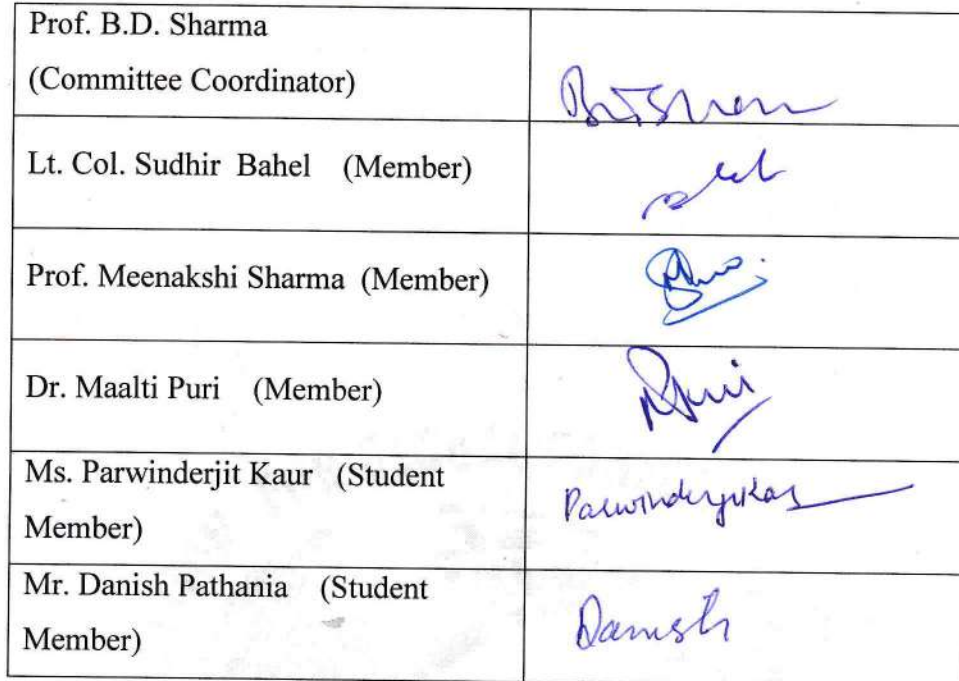 Prof. B.D. Sharma
(Committee Coordinator)
Lt. Col. Sudhir Bahel (Member)
Prof. Meenakshi Sharma (Member)
Dr. Maalti Puri (Member)
Ms. Parwinderjit Kaur (Student
Member)
Mr. Danish Pathania (Student
Member)
Danish